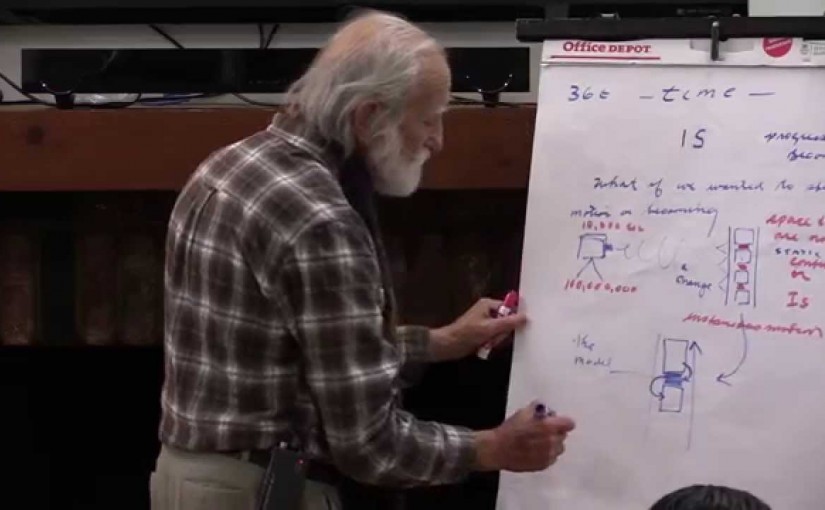 Office DEPOT
36E - time -
IS
What if we wanted to
motion or becoming
10,000 sec
100,000,000
a change
space
are no
STATIC
or
Is
instantaneous motion
the
model